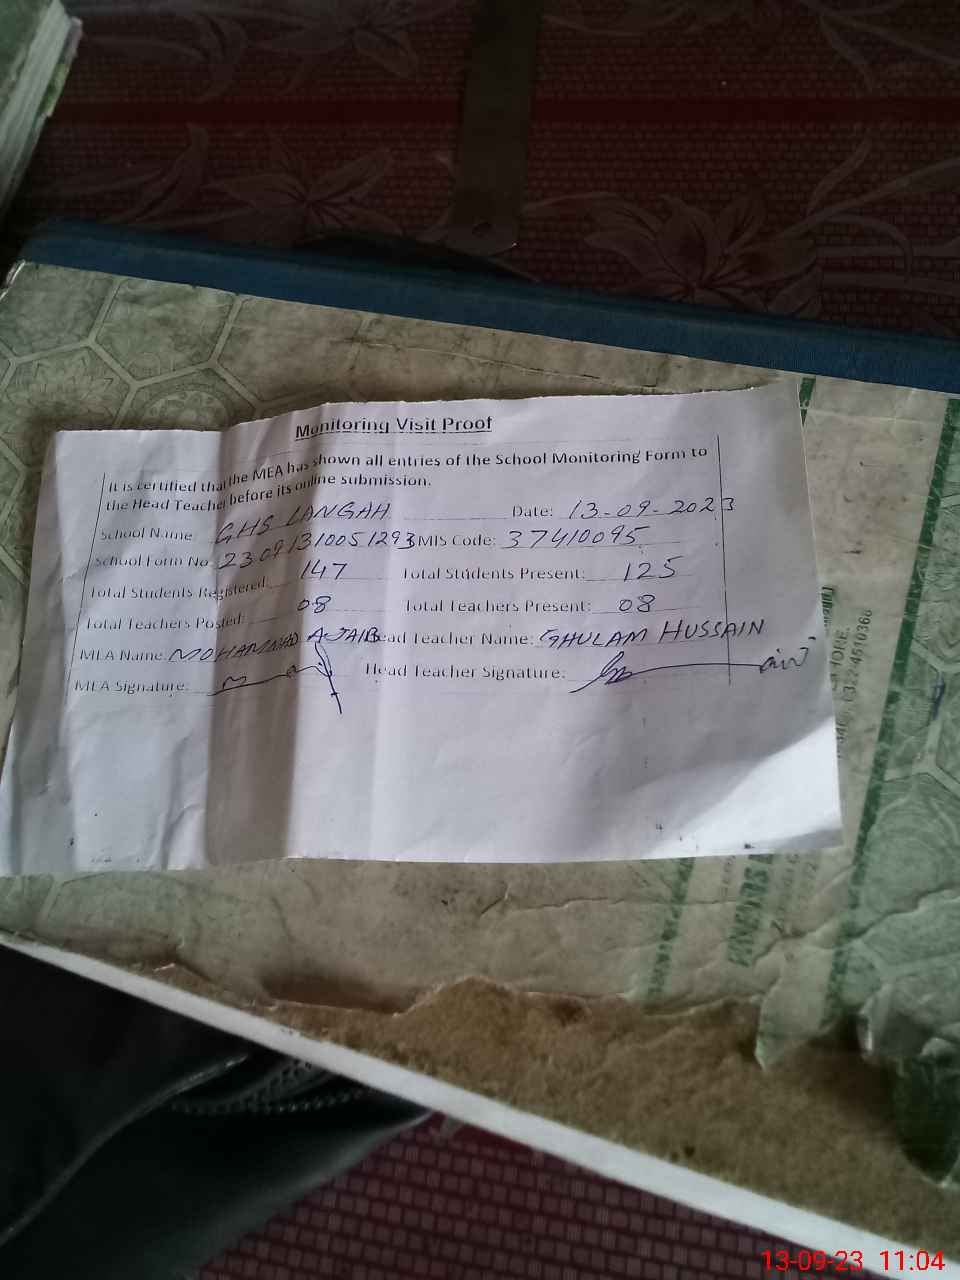 Monitoring Visit Proof
It is certified that the MEA has shown all entries of the School Monitoring Form to
the Head Teacher before its online submission.
School Name: GHS LANGAH Date: 13-09-2023
School Form No: 23091310051293 EMIS Code: 37410095
Total Students Registered: 147 Total Students Present: 125
Total Teachers Posted: 08 Total Teachers Present: 08
MEA Name: MOHAMMAD AJAIB Head Teacher Name: GHULAM HUSSAIN
MEA Signature: Head Teacher Signature:
13-09-23 11:04